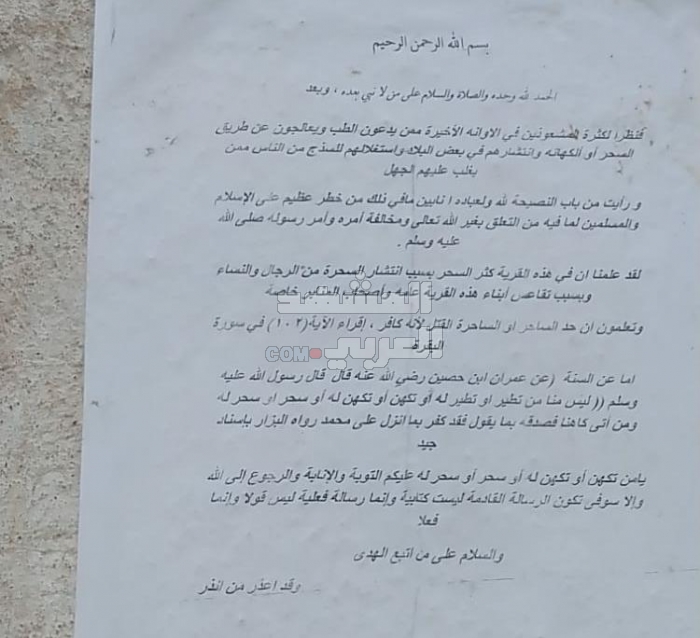 بسم الله الرحمن الرحيم
الحمد لله وحده والصلاة والسلام على من لا نبي بعده ، وبعد
فنظرا لكثرة المشعوذين في الاونه الأخيرة ممن يدعون الطب ويعالجون عن طريق
السحر أو الكهانه وانتشارهم في بعض البلاد واستغلالهم للسذج من الناس ممن
يغلب عليهم الجهل
و رأيت من باب النصيحة لله ولعباده ا نابين مافي ذلك من خطر عظيم على الإسلام
والمسلمين لما فيه من التعلق بغير الله تعالى ومخالفة أمره وأمر رسوله صلى الله
عليه وسلم .
لقد علمنا ان في هذه القرية كثر السحر بسبب انتشار السحرة من الرجال والنساء
وبسبب تقاعس أبناء هذه القرية عامه وأصحاب المنابر خاصة
وتعلمون ان حد الساحر او الساحرة القتل لأنه كافر ، إقراء الآية (١٠٢) في سورة
البقرة
اما عن السنة (عن عمران ابن حصين رضي الله عنه قال قال رسول الله عليه
وسلم (( ليس منا من تطير او تطير له أو تكهن أو تكهن له أو سحر او سحر له
ومن أتى كاهنا فصدقه بما يقول فقد كفر بما انزل على محمد رواه البزار بإسناد
جيد
يامن تكهن أو تكهن له أو سحر أو سحر له عليكم التوبة والإنابة والرجوع إلى الله
وإلا سوفى تكون الرسالة القادمة ليست كتابية وإنما رسالة فعلية ليس قولا وإنما
فعلا
والسلام على من اتبع الهدى
وقد اعذر من انذر
المشهد
العربي.COM